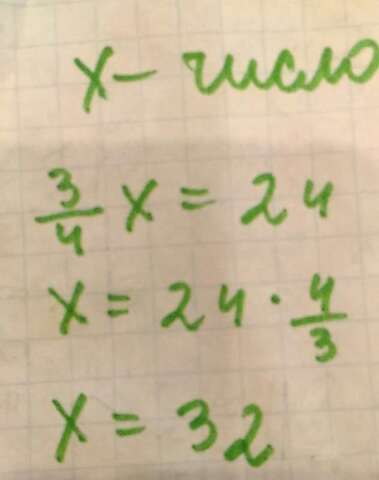 x – число
3/4 x = 24
x = 24 · 4/3
x = 32